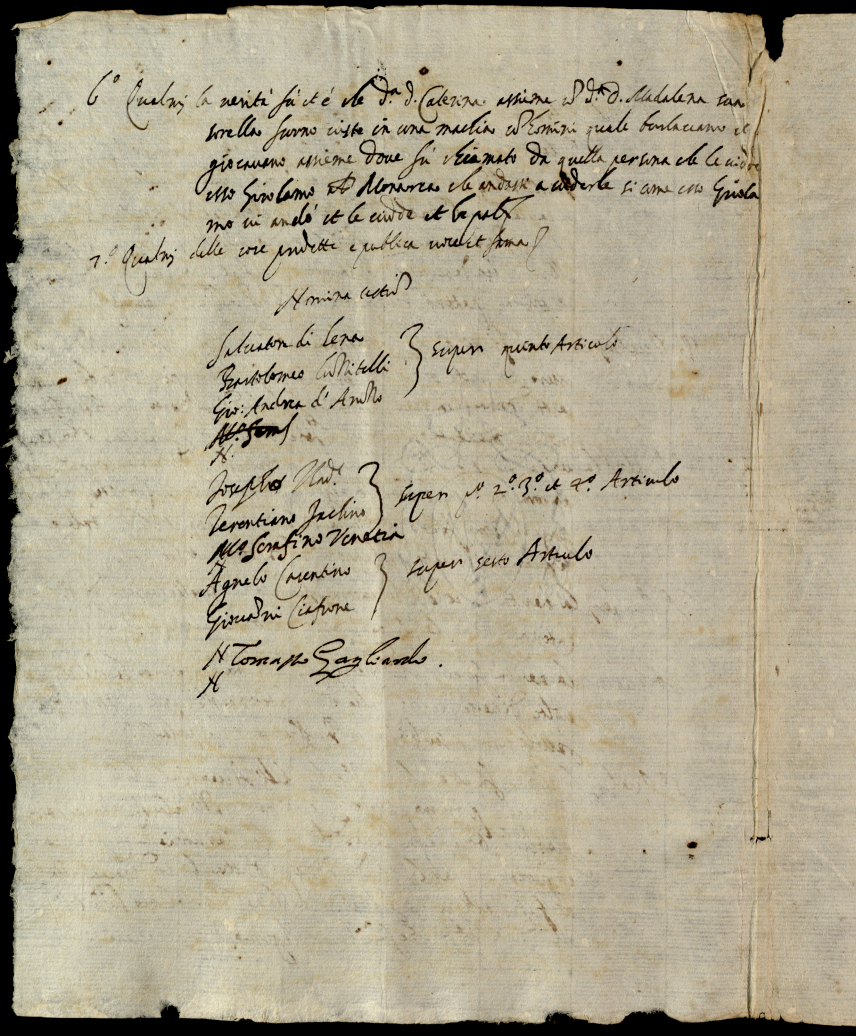 6° Qualmi la verità fù et è che d.ª d. Caterina assieme co d.ª D. Madalena sua
sorella furno viste in una machia co homini quale burlavano et
giocavano assieme dove fù chiamato da quella persona che le vidde
esso Girolamo Monarca che andasse a viderle si come esso Girola
mo vi andò et le vidde et
7.° Qualmi delle cose predette è publica voce et fama
Nomina testiū
Salvator di Lena
Bartolomeo
Gio: Andrea d'
super quinto Articolo
N.
Joseph
Terentiano
M.º Serafino Venetia
super p.º 2.º 3.º et 4.º Articulo
Agnelo Cosentino
Giovanni Ciafrone
super sesto Articulo
N Tomasso Gagliardo.
N